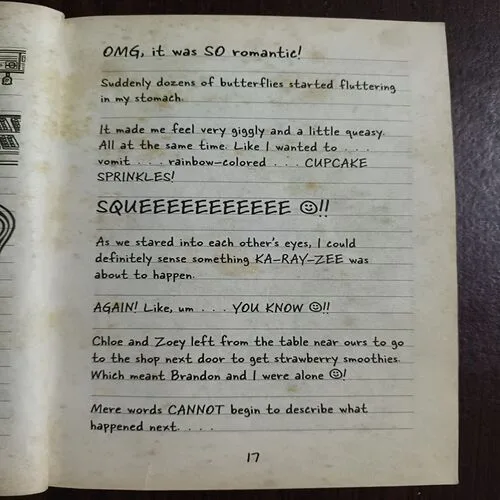 OMG, it was SO romantic!
Suddenly dozens of butterflies started fluttering
in my stomach.
It made me feel very giggly and a little queasy.
All at the same time. Like I wanted to . . .
vomit . . . rainbow-colored . . . CUPCAKE
SPRINKLES!
SQUEEEEEEEEEEE ☺!!
As we stared into each other's eyes, I could
definitely sense something KA-RAY-ZEE was
about to happen.
AGAIN! Like, um . . . YOU KNOW ☺!!
Chloe and Zoey left from the table near ours to go
to the shop next door to get strawberry smoothies.
Which meant Brandon and I were alone ☺!
Mere words CANNOT begin to describe what
happened next. . . .
17